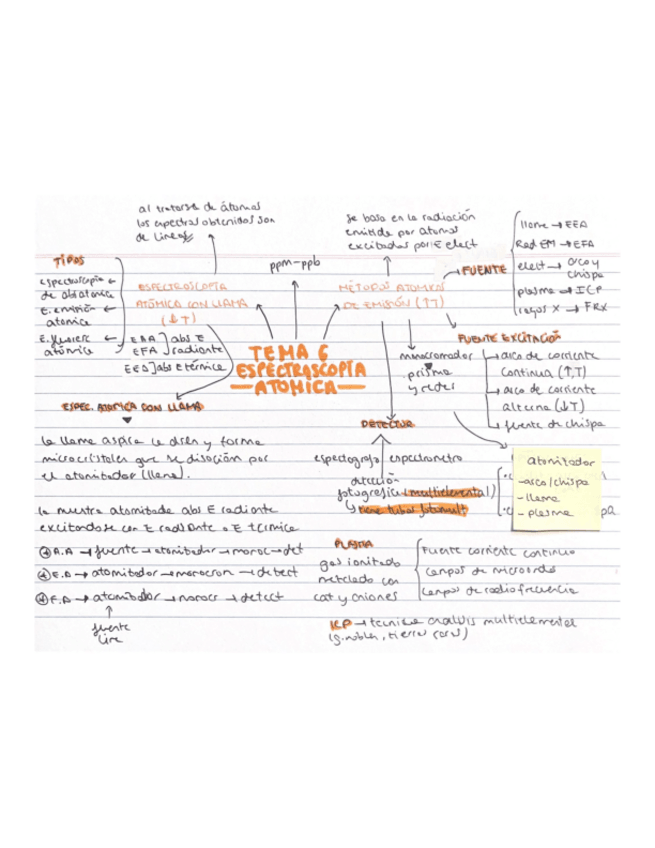 al tratarse de átomos
los espectros obtenidos son
de líneas
se basa en la radiación
emitida por átomos
excitados por E elect
llama → EEA
Rad EM → EFA
elect → arco y
chispa
plasma → ICP
rayos X → FRX
FUENTE
TIPOS
espectroscopía
de abs atómica
E. emisión
atómica
E. fluoresc
atómica
EAA
EFA
abs E
radiante
EEA] abs E térmica
ESPECTROSCOPÍA
ATÓMICA CON LLAMA
(↓T)
ppm-ppb
MÉTODOS ATÓMICOS
DE EMISIÓN (↑T)
TEMA 6
ESPECTROSCOPÍA
ATÓMICA
monocromador
prisma
y redes
FUENTE EXCITACIÓN
arco de corriente
continua (↑T)
arco de corriente
alterna (↓T)
fuente de chispa
ESPEC. ATÓMICA CON LLAMA
la llama aspira la disln y forma
microcristales que se disocian por
el atomizador (llama).
la muestra atomizada abs E radiante
excitándose con E radiante o E térmica
A.A → fuente → atomizador → monoc → det
E.A → atomizador → monocrom → detect
F.A → atomizador → monocr → detect
fuente
DETECTOR
espectógrafo espectrómetro
detección
fotográfica (multielemental)
tiene tubos fotomult
atomizador
-arco/chispa
-llama
-plasma
PLASMA
gas ionizado
mezclado con
cat y aniones
Fuente corriente continua
Campos de microondas
Campos de radiofrecuencia
ICP → técnica análisis multielemental
(g.nobles, tierras raras)